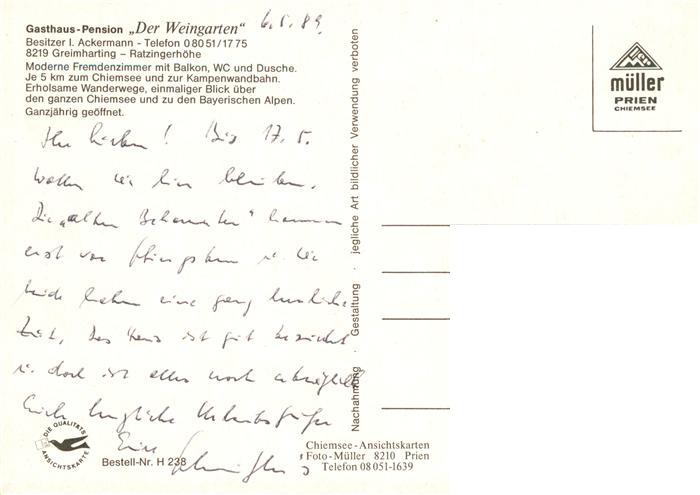 Gasthaus-Pension „Der Weingarten" 6.5.89
Besitzer I. Ackermann - Telefon 0 80 51/17 75
8219 Greimharting - Ratzingerhöhe
Moderne Fremdenzimmer mit Balkon, WC und Dusche.
Je 5 km zum Chiemsee und zur Kampenwandbahn.
Erholsame Wanderwege, einmaliger Blick über
den ganzen Chiemsee und zu den Bayerischen Alpen.
Ganzjährig geöffnet.
Ihr Lieben! Bis 17.5.
wollen wir hier bleiben.
Die „alten Bekannten" kommen
erst vor Pfingsten u. wir
beide haben eine ganz herrliche
Zeit, das Haus ist gut besucht
u. doch ist alles noch
Euch herzliche Urlaubsgrüße
Eure
DIE QUALITÄTS
ANSICHTSKARTE
Bestell-Nr. H 238
Nachahmung, Gestaltung, jegliche Art bildlicher Verwendung verboten
Chiemsee-Ansichtskarten
Foto-Müller 8210 Prien
Telefon 08 051-1639
müller
PRIEN
CHIEMSEE